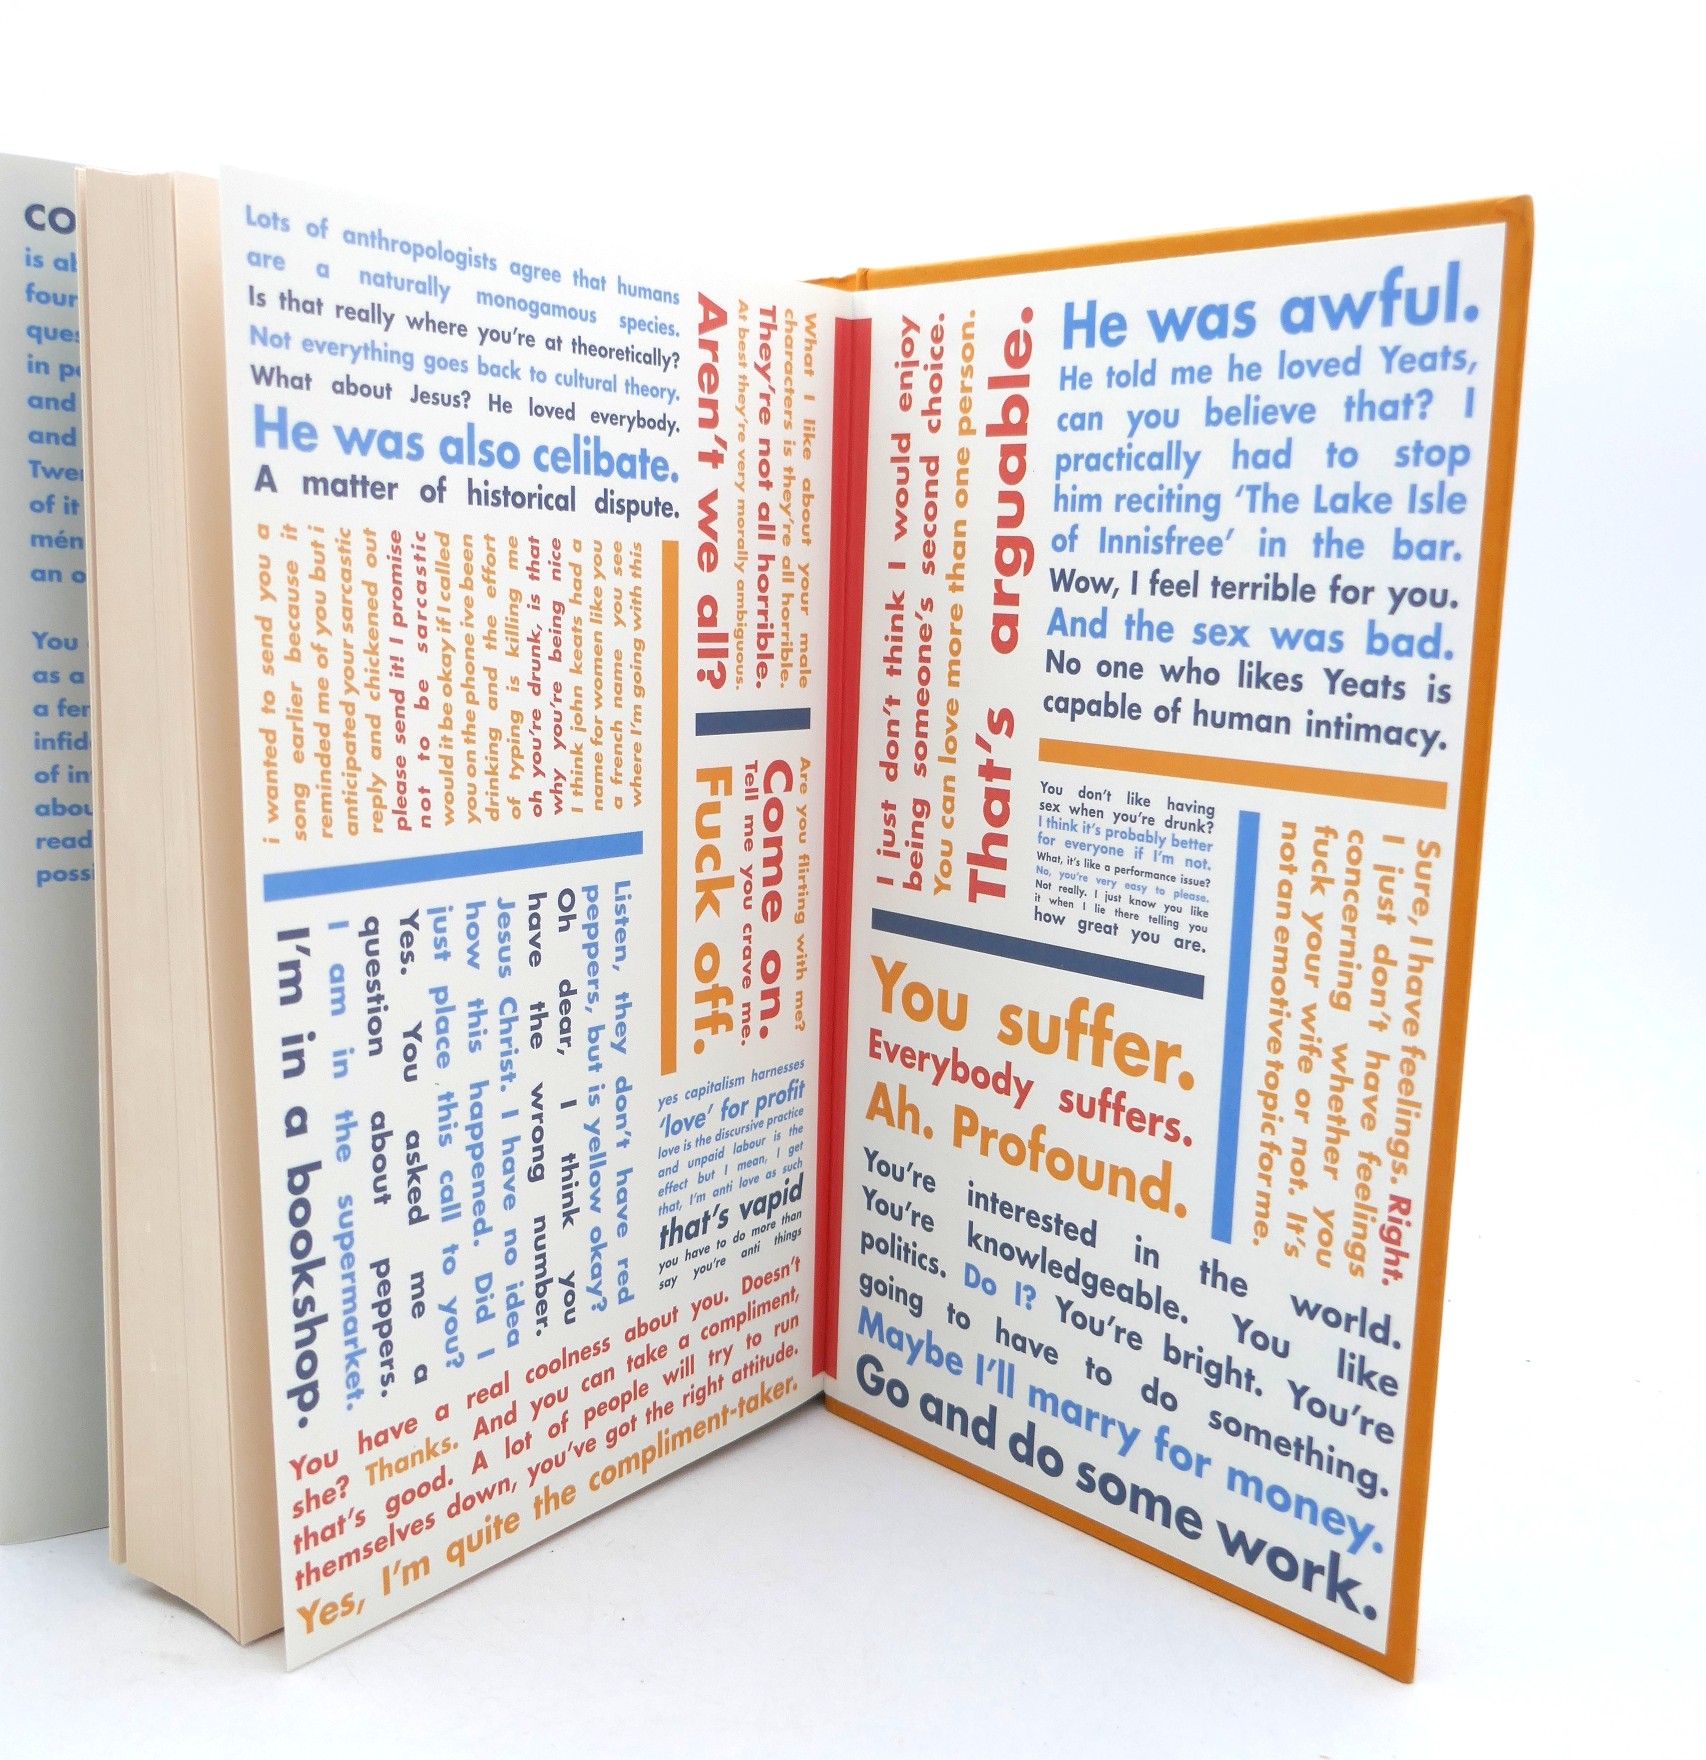 CO
is ab
four
ques
in pe
and
and
Twen
of it
mén
an o
You
as a
a fer
infid
of in
abou
read
possi
Lots of anthropologists agree that humans
are a naturally monogamous species.
Is that really where you're at theoretically?
Not everything goes back to cultural theory.
What about Jesus? He loved everybody.
He was also celibate.
A matter of historical dispute.
i wanted to send you a
song earlier because it
reminded me of you but i
anticipated your sarcastic
reply and chickened out
please send it! I promise
not to be sarcastic
would it be okay if I called
you on the phone ive been
drinking and the effort
of typing is killing me
oh you're drunk, is that
why you're being nice
I think john keats had a
name for women like you
a french name you see
where I'm going with this
Aren't we all?
At best they're very morally ambiguous.
They're not all horrible.
characters is they're all horrible.
What I like about your male
Are you flirting with me?
Come on.
Tell me you crave me.
Fuck off.
Listen, they don't have red
peppers, but is yellow okay?
Oh dear, I think you
have the wrong number.
Jesus Christ. I have no idea
how this happened. Did I
just place this call to you?
Yes. You asked me a
question about peppers.
I am in the supermarket.
I'm in a bookshop.
yes capitalism harnesses
'love' for profit
love is the discursive practice
and unpaid labour is the
effect but I mean, I get
that, I'm anti love as such
that's vapid
you have to do more than
say you're anti things
You have a real coolness about you. Doesn't
she? Thanks. And you can take a compliment,
that's good. A lot of people will try to run
themselves down, you've got the right attitude.
Yes, I'm quite the compliment-taker.
I just don't think I would enjoy
being someone's second choice.
You can love more than one person.
That's arguable.
He was awful.
He told me he loved Yeats,
can you believe that? I
practically had to stop
him reciting 'The Lake Isle
of Innisfree' in the bar.
Wow, I feel terrible for you.
And the sex was bad.
No one who likes Yeats is
capable of human intimacy.
You don't like having
sex when you're drunk?
I think it's probably better
for everyone if I'm not.
What, it's like a performance issue?
No, you're very easy to please.
Not really. I just know you like
it when I lie there telling you
how great you are.
Sure, I have feelings. Right.
I just don't have feelings
concerning whether you
fuck your wife or not. It's
not an emotive topic for me.
You suffer.
Everybody suffers.
Ah. Profound.
You're interested in the world.
You're knowledgeable. You like
politics. Do I? You're bright. You're
going to have to do something.
Maybe I'll marry for money.
Go and do some work.